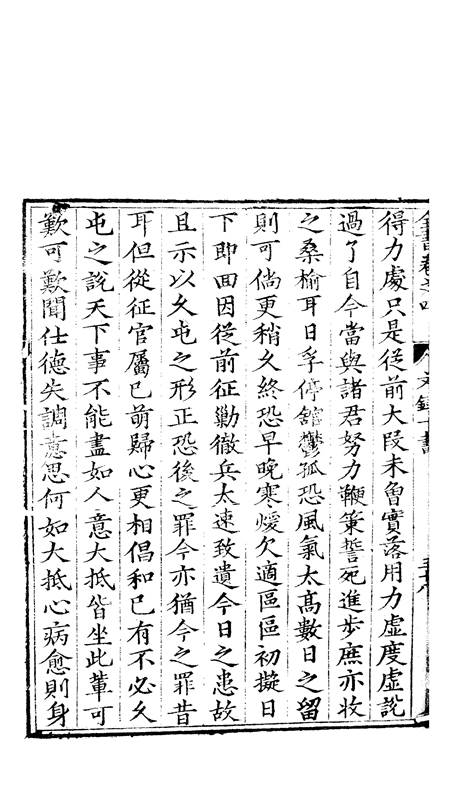 得力處只是從前大段未曾實落用力虛度虛說
過了自今當與諸君努力鞭策誓死進步庶亦收
之桑榆耳日孚停舘鬱孤恐風氣太高數日之留
則可倘更稍久終恐早晚寒煖欠適區區初擬日
下即回因從前征勦徹兵太速致遺今日之患故
且示以久屯之形正恐後之罪今亦猶今之罪昔
耳但從征官屬已萌歸心更相倡和已有不必久
屯之說天下事不能盡如人意大抵皆坐此輩可
歎可歎聞仕德失調意思何如大抵心病愈則身